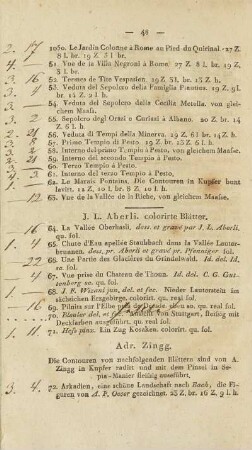 — 48 —
2. 17 1050. Le Jardin Colonne à Rome au Pied du Quirinal. 27 Z.
8 l. br. 19 Z. 5 l. h.
4. — 51. Vue de la Villa Negroni à Rome. 27 Z. 8 l. br. 19 Z.
5 l. br.
3. 16 52. Termes de Tite Vespasien. 19 Z. 3½ l. br. 13 Z. h.
2. 4 53. Veduta del Sepolcro della Famiglia Plautica. 19 Z. br.
13 Z. 2 l. h.
54. Veduta del Sepolcro della Cecilia Metella. von gleichem
Maße.
55. Sepolcro degl Orazi o Curiazi à Albano. 20 Z. br.
13 Z. 6 l. h.
2. 21 56. Veduta di Tempi della Minerva. 19 Z. 6 l. br. 14 Z. h.
3. 8 57. Primo Tempio di Pesto. 19 Z. 3 l. br. 13 Z. h.
58. Interno del primo Tempio à Pesto, von gleichem Maaße.
2. 21 59. Interno del secondo Tempio à Pesto.
60. Terzo Tempio à Pesto.
3. 4 61. Interno del terzo Tempio à Pesto,
62. Le Marais Pontains. Die Contouren in Kupfer bunt
lavirt. 12 Z. 10 l. br. 8 Z. 8 l. h.
12 63. Vue de la Vallée de la Riche, von gleichem Maaße.
J. L. Aberli. colorirte Blätter.
16 64. La Vallée Oberhasli, dess. et gravé par J. L. Aberli.
qu. fol.
4 65. Chute d'Eau apellée Staubbach dans la Vallée Lauter-
brunnen. dess. pr. Aberli et gravé pr. Pfenninger fol.
22 66. Une Partie des Glacières du Grindelwald. Id. del. Id.
sc. fol.
4 67. Vue prise du Chateau de Thoun. Id. del. C. G. Gut-
tenberg sc. qu. fol.
68. J. F. Wizani jun. del. et fec. Nieder Lauterstein im
sächsischen Erzgebirge. colorirt. qu. real fol.
16 69. Pilnitz zur l'Elbe près de Dresde. Idem sc. qu. real fol.
70. von Stuttgart, Reiteg mit
Deckfarben ausgeführt. qu. real fol.
11 71. Hess pinx. Ein Zug Kosaken. colorirt. qu. fol.
Adr. Zingg.
Die Contouren von nachfolgenden Blättern sind von A.
Zingg in Kupfer radirt und mit dem Pinsel in Se-
pia-Manier fleißig ausgeführt.
3. 4 72. Arkadien, eine schöne Landschaft nach Bach, die Fi-
guren von A. F. Oeser gezeichnet. 25 Z. br. 19 Z. h.